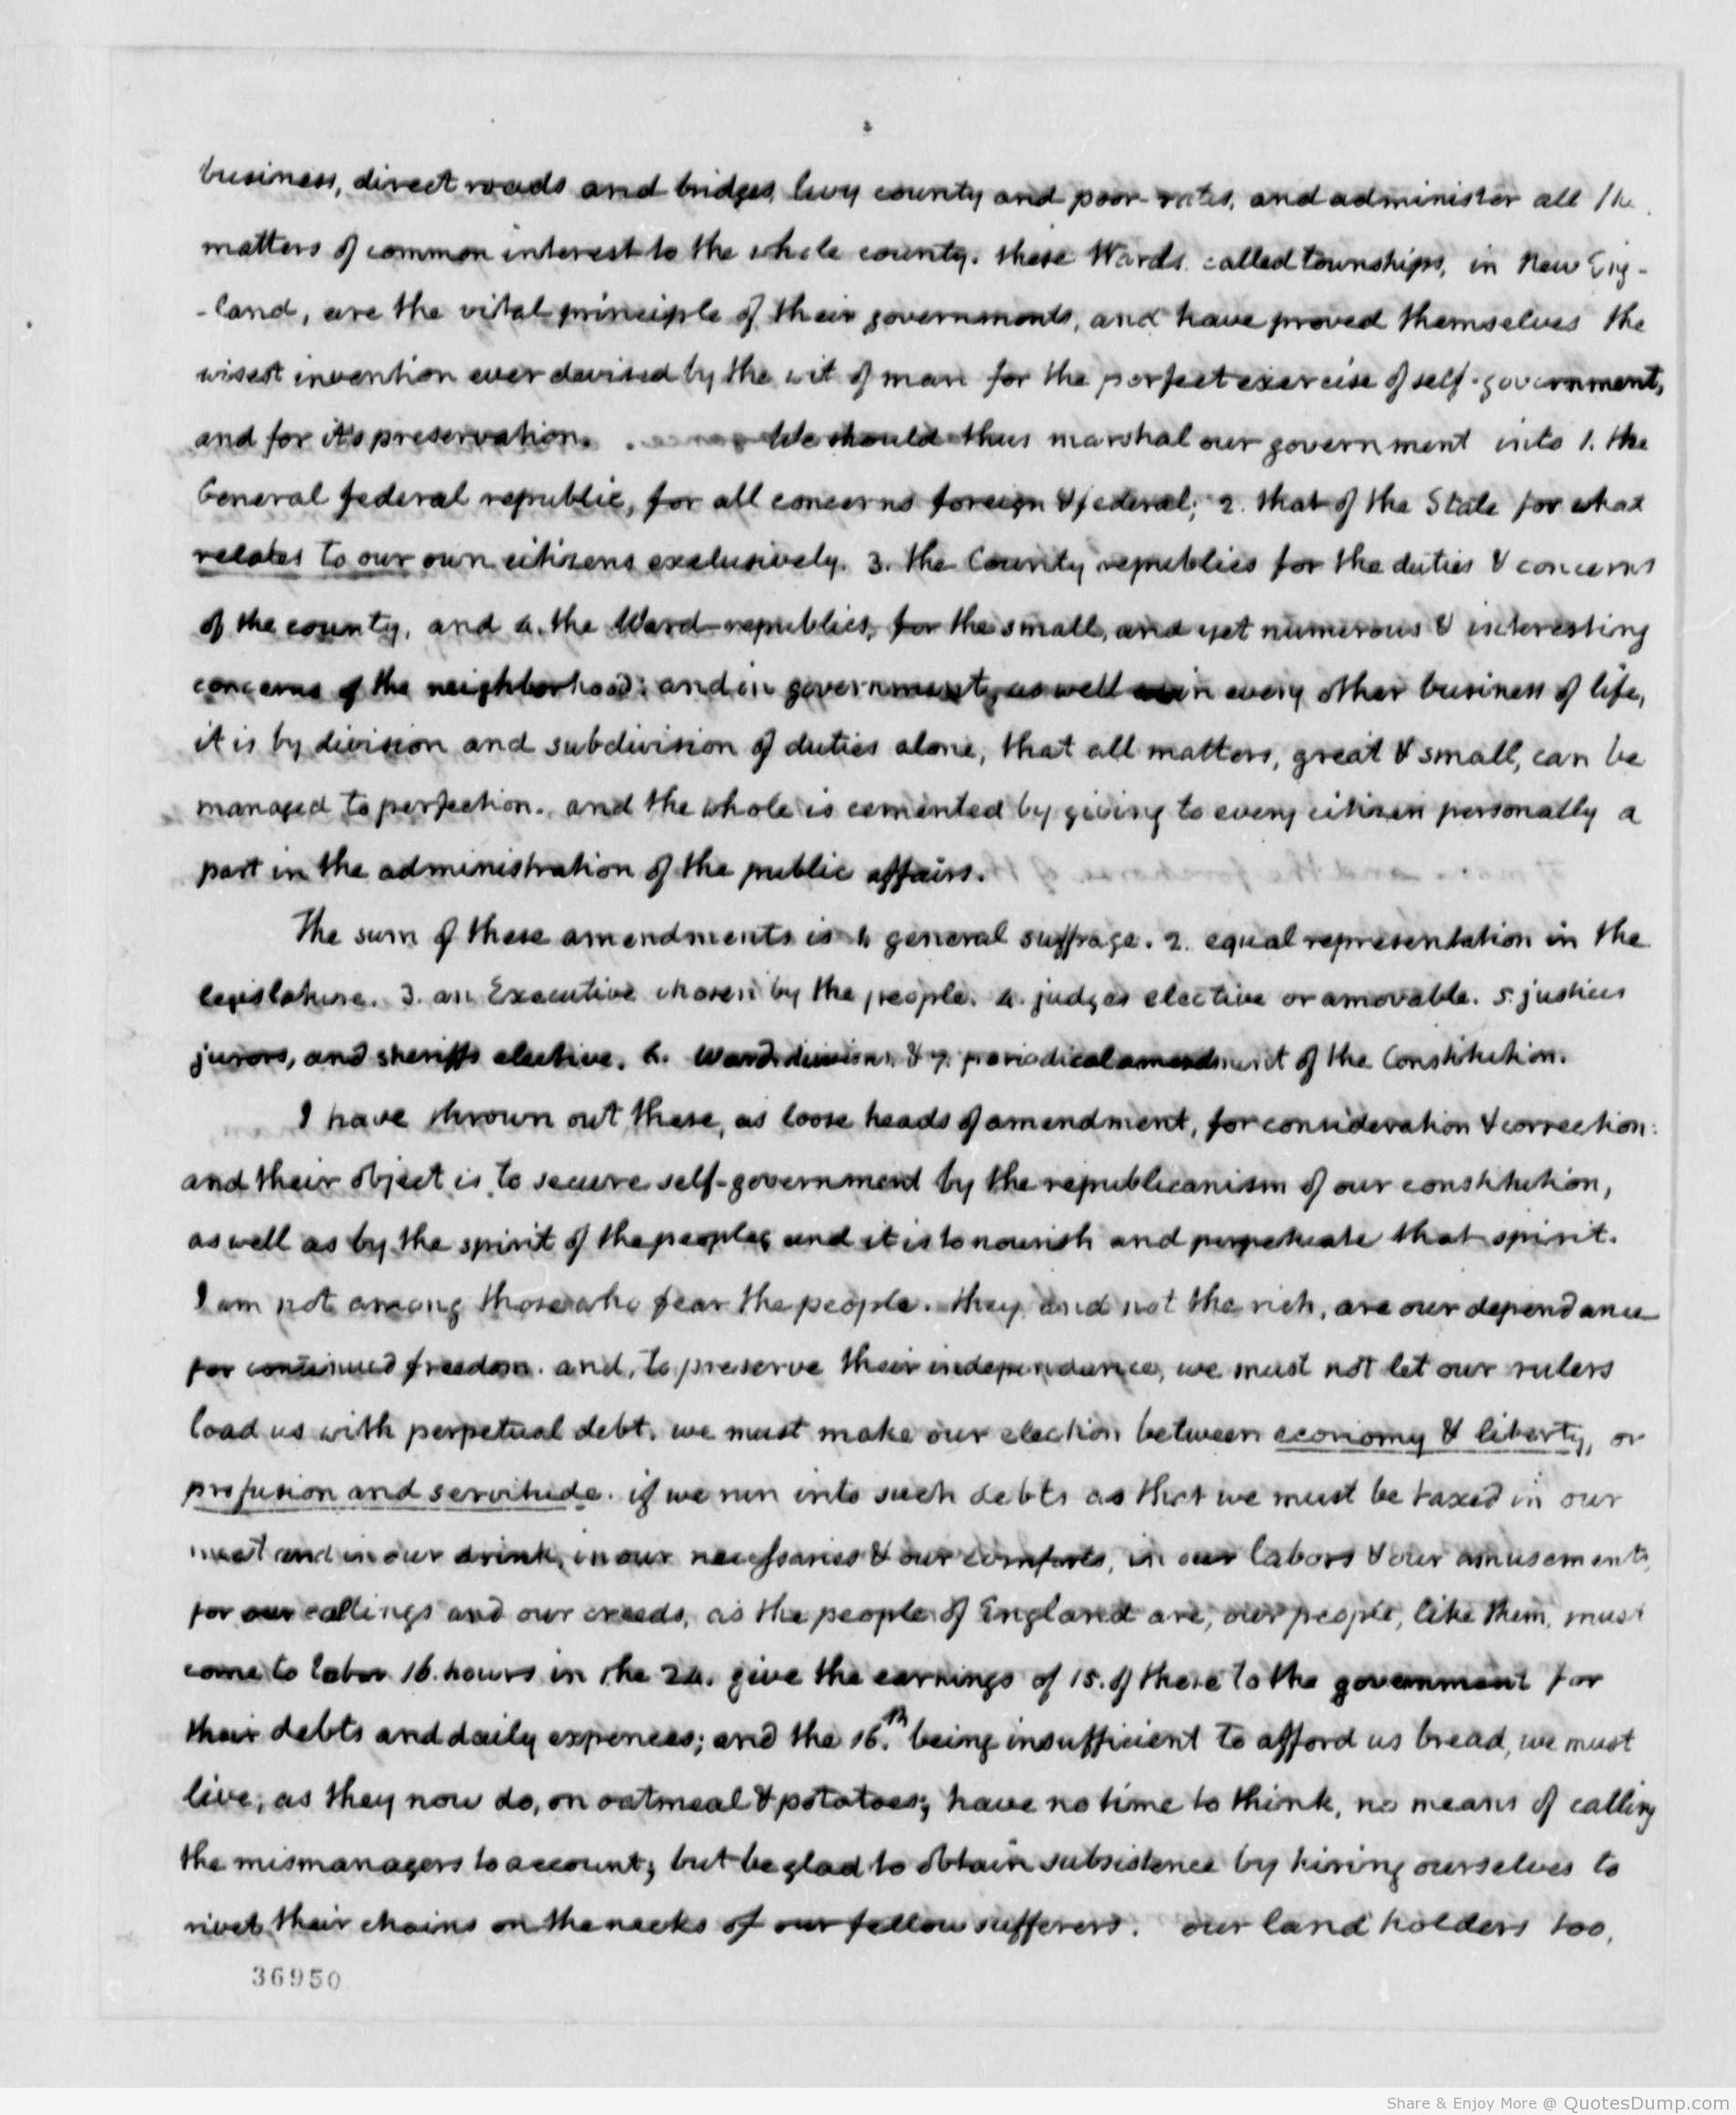 business, direct roads and bridges, levy county and poor rates, and administer all the
matters of common interest to the whole county. these Wards, called townships, in New Eng-
-land, are the vital principle of their governments, and have proved themselves the
wisest invention ever devised by the wit of man for the perfect exercise of self-government,
and for it's preservation. We should thus marshal our government into 1. the
General federal republic, for all concerns foreign & federal; 2. that of the State for what
relates to our own citizens exclusively. 3. the County republics for the duties & concerns
of the county, and 4. the Ward-republics, for the small, and yet numerous & interesting
concerns of the neighborhood: and in government, as well as in every other business of life,
it is by division and subdivision of duties alone, that all matters, great & small, can be
managed to perfection. and the whole is cemented by giving to every citizen personally a
part in the administration of the public affairs.
The sum of these amendments is 1. general suffrage. 2. equal representation in the
legislature. 3. an Executive chosen by the people. 4. judges elective or amovable. 5. justices
jurors, and sheriffs elective. 6. Ward divisions. & 7. periodical amendment of the Constitution.
I have thrown out these, as loose heads of amendment, for consideration & correction:
and their object is to secure self-government by the republicanism of our constitution,
as well as by the spirit of the people; and it is to nourish and perpetuate that spirit.
I am not among those who fear the people. they and not the rich, are our dependance
for continued freedom. and, to preserve their independance, we must not let our rulers
load us with perpetual debt. we must make our election between economy & liberty, or
profusion and servitude. if we run into such debts as that we must be taxed in our
meat and in our drink, in our necessaries & our comforts, in our labors & our amusements,
for our callings and our creeds, as the people of England are, our people, like them, must
come to labor 16. hours in the 24. give the earnings of 15. of these to the government for
their debts and daily expences; and the 16.th being insufficient to afford us bread, we must
live, as they now do, on oatmeal & potatoes; have no time to think, no means of calling
the mismanagers to account; but be glad to obtain subsistence by hiring ourselves to
rivet their chains on the necks of our fellow sufferers. our land holders too,
36950
Share & Enjoy More @ QuotesDump.com